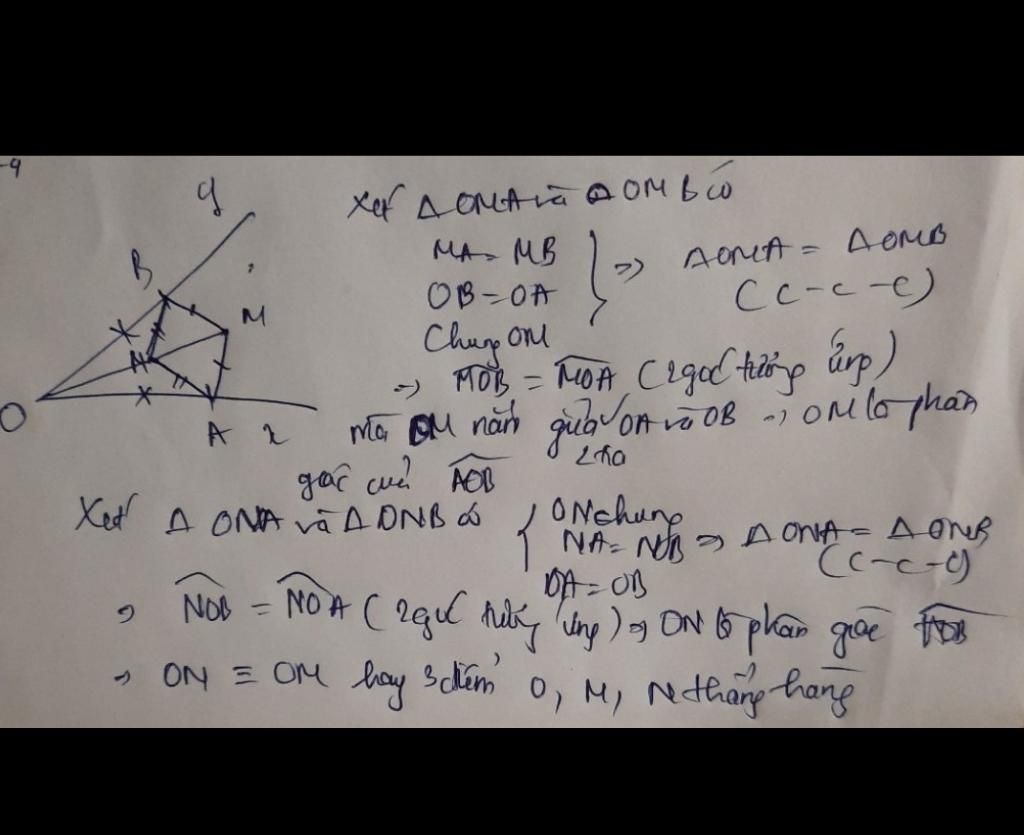 -9
y
B
M
N
O
A x
Xét Δ OMA và Δ OMB có
MA = MB
OB = OA
Chung OM
} => ΔOMA = ΔOMB
(c-c-c)
=> MOB = MOA (2 góc tương ứng)
mà OM nằm giữa OA và OB => OM là phân
2 tia
giác của AOB
Xét Δ ONA và Δ ONB có { ON chung
NA = NB => Δ ONA = Δ ONB
OA = OB
(c-c-c)
=> NOB = NOA (2 góc tương ứng) => ON là phân giác AOB
=> ON ≡ OM hay 3 điểm O, M, N thẳng hàng